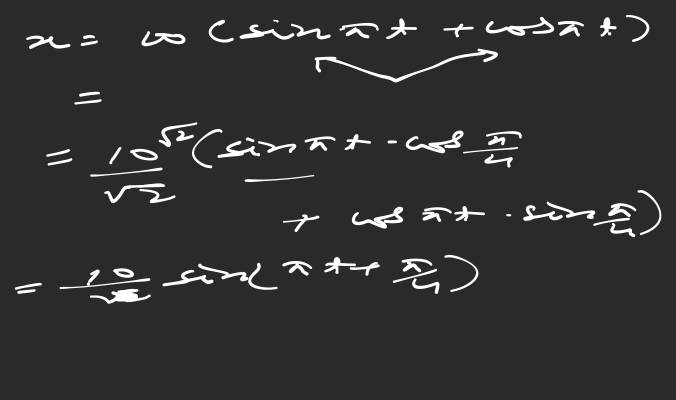 x = 10 (sin πt + cos πt)
=
= 10√2/√2 (sin πt · cos π/4
+ cos πt · sin π/4)
= 10/ sin(πt + π/4)